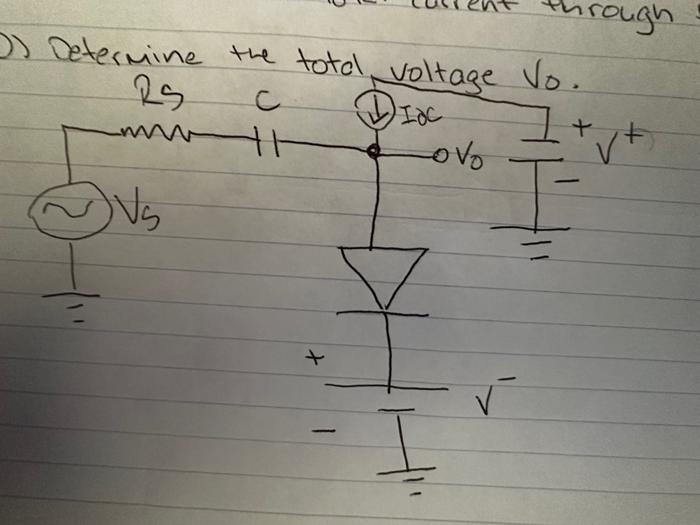 current through
D) Determine the total voltage Vo.
Rs C IDC
+ V+
Vo
−
Vs
+
V−
−